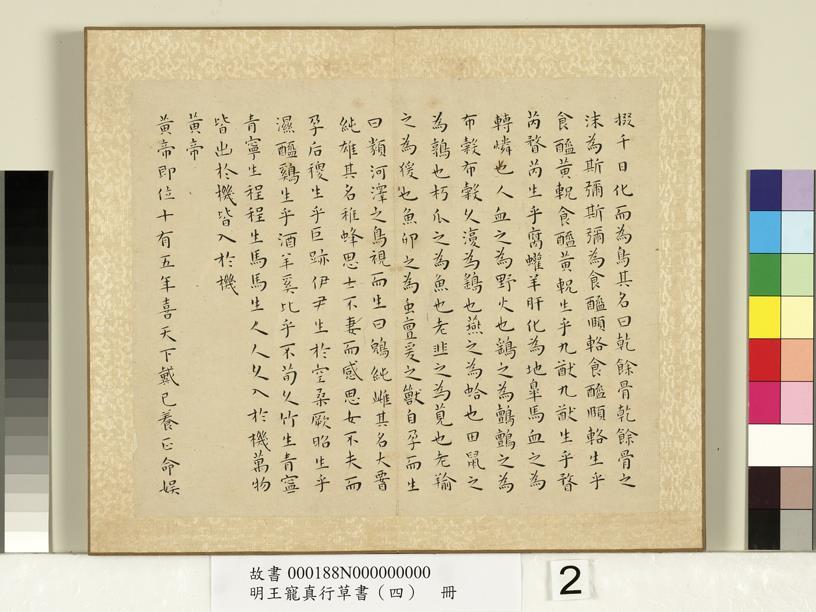 掇千日化而為鳥其名曰乾餘骨乾餘骨之
沫為斯彌斯彌為食醯頤輅食醯頤輅生乎
食醯黃軦食醯黃軦生乎九猷九猷生乎瞀
芮瞀芮生乎腐蠸羊肝化為地皐馬血之為
轉憐也人血之為野火也鷂之為鸇鸇之為
布穀布穀久復為鷂也燕之為蛤也田鼠之
為鶉也朽瓜之為魚也老韭之為莧也老羭
之為猨也魚卵之為虫亶爰之獸自孕而生
曰類河澤之鳥視而生曰鶂純雌其名大䁂
純雄其名稚蜂思士不妻而感思女不夫而
孕后稷生乎巨跡伊尹生於空桑厥昭生乎
濕醯雞生乎酒羊奚比乎不荀久竹生青寧
青寧生程程生馬馬生人人久入於機萬物
皆出於機皆入於機
黃帝
黃帝即位十有五年喜天下戴已養正命娛
故書 000188N000000000
明王寵真行草書（四） 冊
2